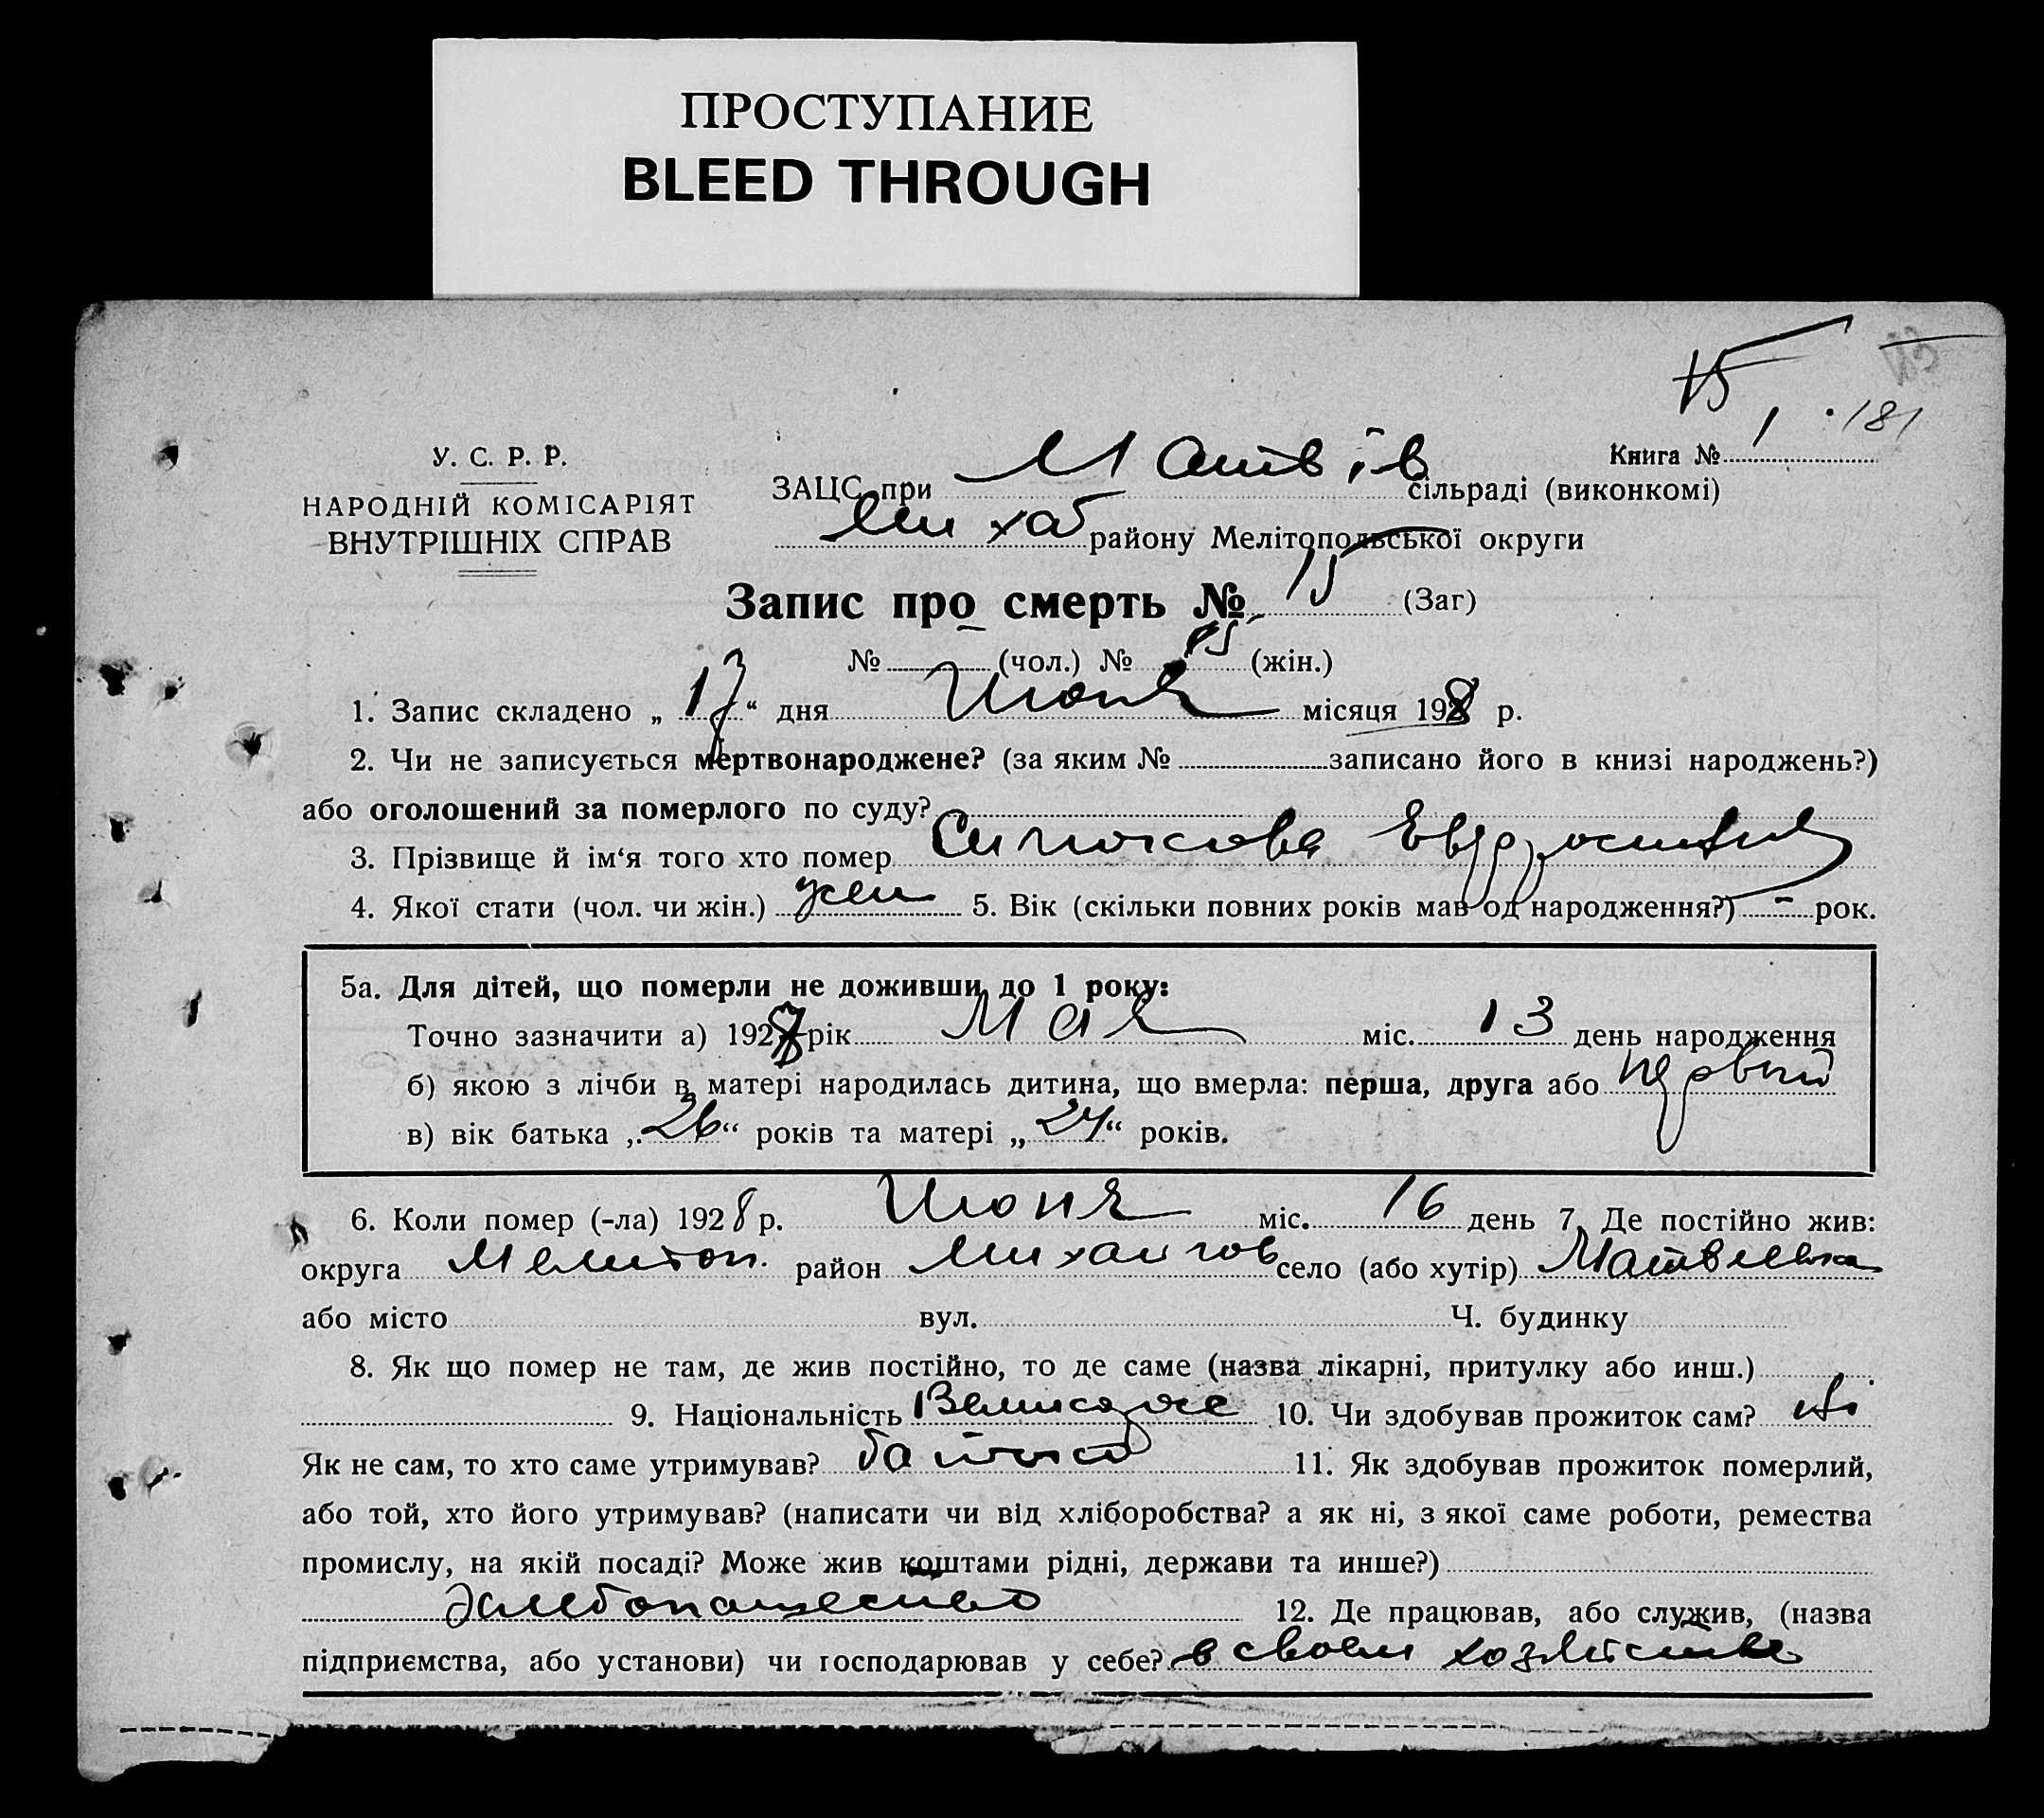 ПРОСТУПАНИЕ
BLEED THROUGH
15
181
Книга № 1
У. С. Р. Р.
НАРОДНІЙ КОМІСАРІЯТ
ВНУТРІШНІХ СПРАВ
ЗАЦС при Матвїв сільраді (виконкомі)
Мих району Мелітопольської округи
Запис про смерть № 15 (Заг)
№ (чол.) № (жін.)
1. Запис складено „ 17 “ дня Июня місяця 1928 р.
2. Чи не записується мертвонароджене? (за яким № записано його в книзі народжень?)
або оголошений за померлого по суду?
3. Прізвище й ім‘я того хто помер
4. Якої стати (чол. чи жін.) жен 5. Вік (скільки повних років мав од народження?) - рок.
5а. Для дітей, що померли не доживши до 1 року:
Точно зазначити а) 1928 рік Мая міс. 13 день народження
б) якою з лічби в матері народилась дитина, що вмерла: перша, друга або первый
в) вік батька „ 26 “ років та матері „ 24 “ років.
6. Коли помер (-ла) 1928 р. Июня міс. 16 день 7. Де постійно жив:
округа Мелитоп. район Михайлов село (або хутір) Матвеевка
або місто вул. Ч. будинку
8. Як що помер не там, де жив постійно, то де саме (назва лікарні, притулку або инш.)
9. Національність 10. Чи здобував прожиток сам?
Як не сам, то хто саме утримував? 11. Як здобував прожиток померлий,
або той, хто його утримував? (написати чи від хліборобства? а як ні, з якої саме роботи, ремества
промислу, на якій посаді? Може жив коштами рідні, держави та инше?)
хлебопашество 12. Де працював, або служив, (назва
підприємства, або установи) чи господарював у себе? в своем хозяйстве